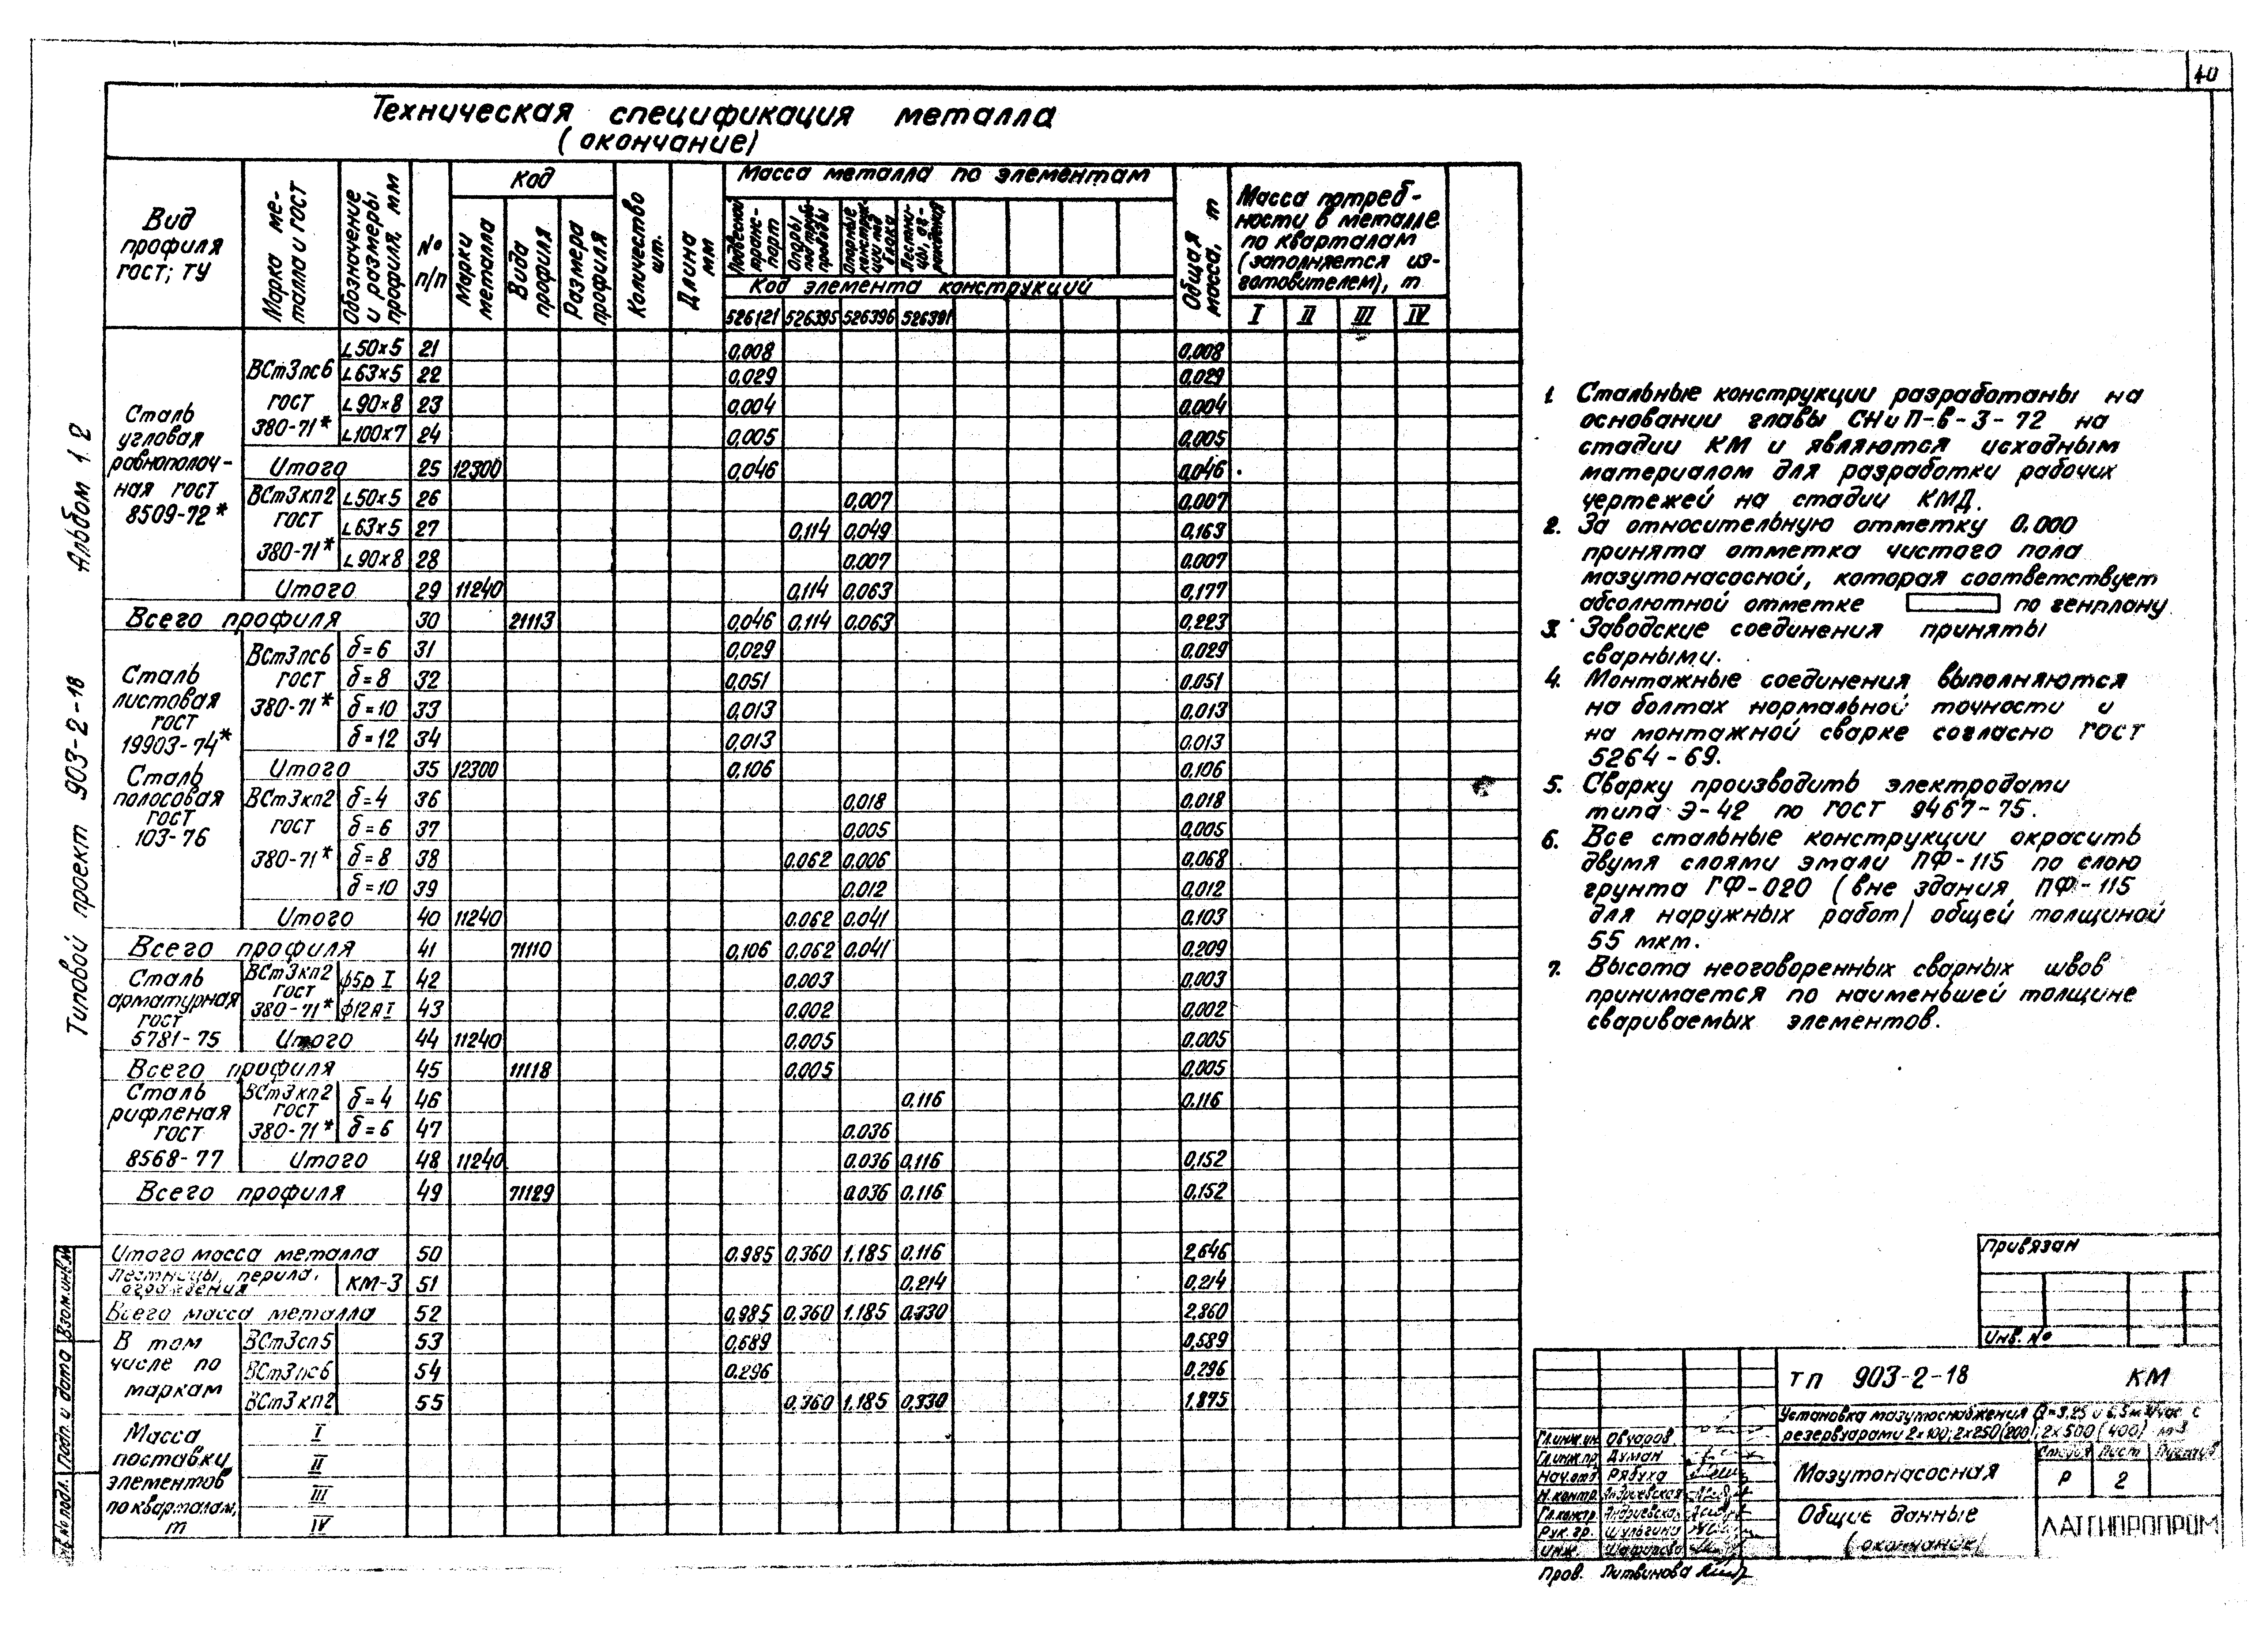 40
Техническая спецификация металла
(окончание)
Вид профиля гост; ТУ
Марка металла и гост
Обозначение и размеры профиля, мм
№ п/п
Код
Марки металла
Вида профиля
Размера профиля
Количество шт.
Длина мм
Масса металла по элементам
Подвесной транс-порт
Опоры под трубо-проводы
Опорные конструк-ции под блоки
Лестни-цы, ог-раждения
Код элемента конструкций
526121 526395 526396 526391
Общая масса, т
Масса потреб-
ности в металле
по кварталам
(заполняется из-
готовителем), т
I II III IV
Сталь угловая равнополоч-ная гост 8509-72*
ВСт3пс6 гост 380-71*
L50x5 21 0,008 0,008
L63x5 22 0,029 0,029
L90x8 23 0,004 0,004
L100x7 24 0,005 0,005
Итого 25 12300 0,046 0,046
ВСт3кп2 гост 380-71*
L50x5 26 0,007 0,007
L63x5 27 0,114 0,049 0,163
L90x8 28 0,007 0,007
Итого 29 11240 0,114 0,063 0,177
Всего профиля 30 21113 0,046 0,114 0,063 0,223
Сталь листовая гост 19903-74*
Сталь полосовая гост 103-76
ВСт3пс6 гост 380-71*
δ=6 31 0,029 0.029
δ=8 32 0,051 0.051
δ=10 33 0,013 0.013
δ=12 34 0,013 0.013
Итого 35 12300 0,106 0,106
ВСт3кп2 гост 380-71*
δ=4 36 0,018 0,018
δ=6 37 0,005 0,005
δ=8 38 0.062 0.006 0,068
δ=10 39 0.012 0,012
Итого 40 11240 0.062 0.041 0.103
Всего профиля 41 71110 0,106 0.062 0.041 0.209
Сталь арматурная гост 5781-75
ВСт3кп2 гост 380-71*
ф5р I 42 0.003 0,003
ф12А I 43 0.002 0,002
Итого 44 11240 0.005 0.005
Всего профиля 45 11118 0.005 0,005
Сталь рифленая гост 8568-77
ВСт3кп2 гост 380-71*
δ=4 46 0,116 0.116
δ=6 47 0.036
Итого 48 11240 0.036 0,116 0,152
Всего профиля 49 71129 0.036 0,116 0,152
Итого масса металла 50 0.985 0,360 1.185 0.116 2,646
Лестницы, перила, ограждения КМ-3 51 0.214 0,214
Всего масса металла 52 0,985 0,360 1.185 0.330 2,860
В том числе по маркам
ВСт3сп5 53 0,689 0,689
ВСт3пс6 54 0.296 0.296
ВСт3кп2 55 0,360 1,185 0,330 1.875
Масса поставки элементов по кварталам, т
I
II
III
IV
1. Стальные конструкции разработаны на
основании главы СНиП-в-3-72 на
стадии КМ и являются исходным
материалом для разработки рабочих
чертежей на стадии КМД.
2. За относительную отметку 0.000
принята отметка чистого пола
мазутонасосной, которая соответствует
абсолютной отметке по генплану.
3. Заводские соединения приняты
сварными.
4. Монтажные соединения выполняются
на болтах нормальной точности и
на монтажной сварке согласно гост
5264-69.
5. Сварку производить электродами
типа Э-42 по гост 9467-75.
6. Все стальные конструкции окрасить
двумя слоями эмали ПФ-115 по слою
грунта ГФ-020 (вне здания ПФ-115
для наружных работ) общей толщиной
55 мкм.
7. Высота неоговоренных сварных швов
принимается по наименьшей толщине
свариваемых элементов.
Привязан
Инв. №
ТП 903-2-18 КМ
Установка мазутоснабжения Q=3,25 и 6,5 м³/час с
резервуарами 2х100; 2х250(200); 2х500(400) м³
Гл.инж.ин. Овчаров
Гл.инж.пр. Думан
Нач.отд Рябуха
Н.контр. Андриевская
Гл.констр. Андриевская
Рук.гр. Шульгина
Инж.
Пров. Литвинова
Мазутонасосная
Стадия Лист Листов
Р 2
Общие данные
(окончание)
ЛАТГИПРОПРОМ
Альбом 1.2
Типовой проект 903-2-18
Взам.инв.№
Подп. и дата
Инв.№ подл.